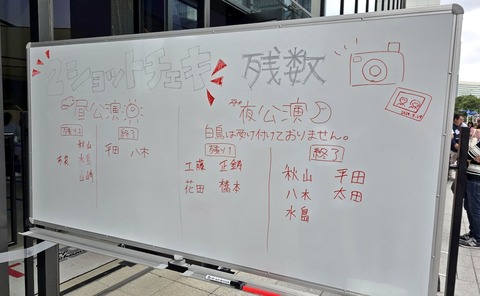 2ショットチェキ 残数
昼公演
残り1
秋山
水島
終了
平田 八木
夜公演
白鳥は受け付けておりません。
残り1
工藤 正野
花田 橋本
終了
秋山 平田
八木 太田
水島